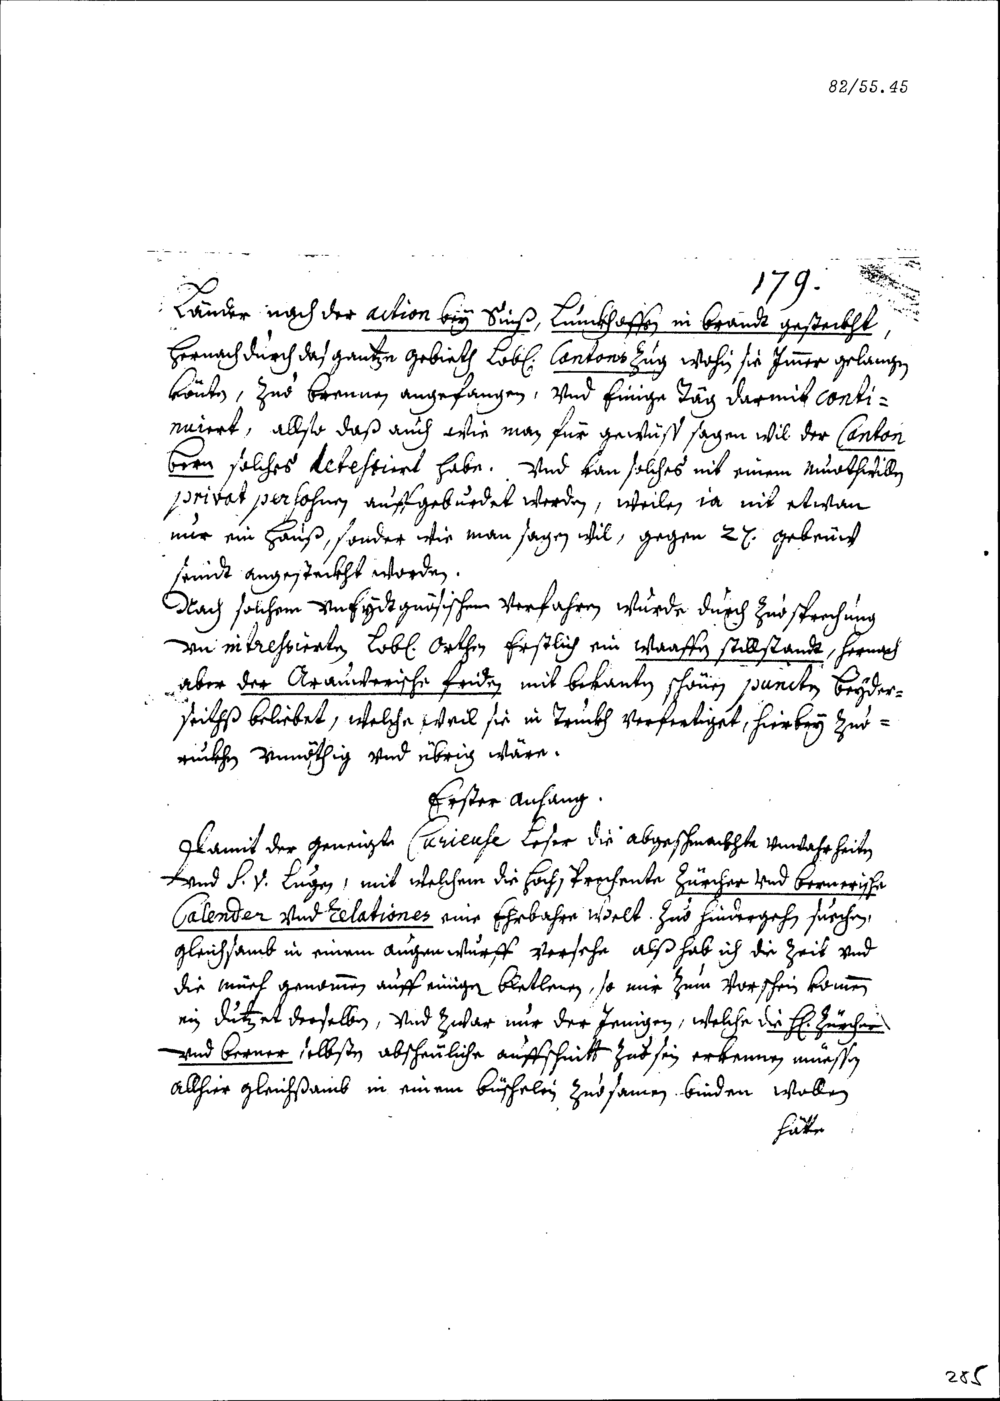 82/55.45
179.
Länder nach der action beÿ Sinß, Lunckhoffen in brandt gesteckht,
hernach durch das gantze gebieth Lobl. Cantons Zug wohin sie Immer gelangen
könten, Zuo brennen angefangen, Vnd Einige Täg darmit conti=
nuiert, allso daß auch wie man für gewüss sagen wil der Canton
bern solches detestiert habe. Vnd kan solches nit einem muothwillen
privat persohnen auffgebürdet werden, weilen ia nit etwan
nur ein Hauß, sonder wie man sagen wil, gegen 27. gebeüw
seindt angesteckht worden.
Nach solchem vnEÿdtgnösischem Verfahren wurde durch Zuosprechung
vnintressierten Lobl. Orthen Erstlich ein waaffen stillstandt, hernach
aber der Arauwerische friden mit bekanten schönen puncten beÿder=
seithß beliebet, welche weil sie in Truckh verfertiget, hierbeÿ Zuo=
ruckhen vnnöthig vnd übrig wäre.
Erster anhang.
Damit der geneigte Curieuse Leser die abgeschmackhte vnwahrheiten
vnd S. V. Lugen, mit welchem die hochsprechente Zürcher vnd bernerische
Calender Vnd Relationes eine Ehrbahre Welt Zuo hindergehen suechen,
gleichsamb in einem augenwurff versehe alß hab ich die Zeit vnd
die müeh genommen auff einigen bletlenen, so mir Zum Vorschein kommen
ein dutzet derselben, Vnd Zwar nur der Jenigen, welche die HH. Zürcher
vnd berner selbsten abscheüliche auffschnitt Zuo sein erkennen müessen
allhier gleichßamb in einem büschelein Zuosamen binden wollen
hätte
285